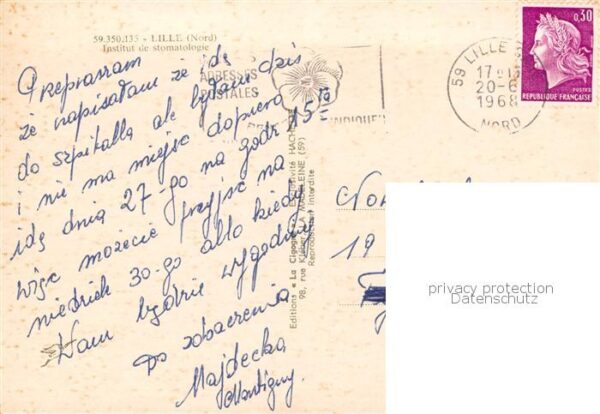 59.350.135 - LILLE (Nord)
Institut de stomatologie
Przepraszam że idę
że napisałam że idę
do szpitalla ale byłam dziś
i nie ma miejsc dopiero
idę dnia 27-go na godz 15ta
więc możecie przyjść na
niedziele 30-go albo kiedy
Wam będzie wygodniej
Do zobaczenia
Majdecka
Montigny.
ADRESSES
POSTALES
INDIQUEN
59 LILLE
17H
20-6
1968
NORD
0,30
POSTES
REPUBLIQUE FRANÇAISE
Editions « La Cigogne » exclusivité HACHETTE
98, rue Kléber - LA MADELEINE (59)
Reproduction interdite
19
privacy protection
Datenschutz